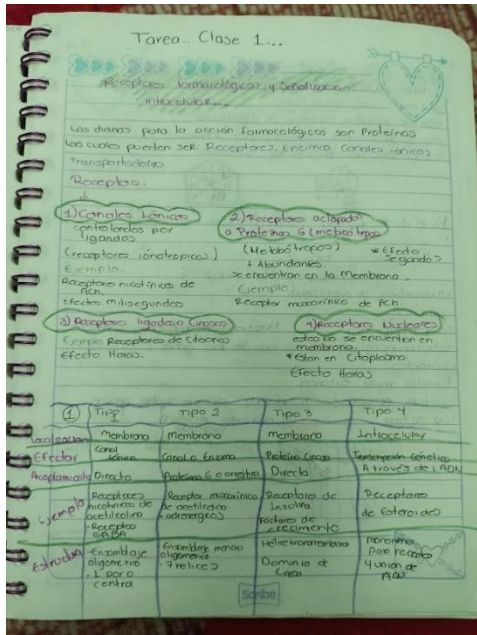 Tarea.. Clase 1...
Receptores farmacológicos y Señalización
intracelular...
Las dianas para la acción farmacológicos son Proteínas
Los cuales pueden ser Receptores, Enzimas, Canales iónicos
Transportadoras
Receptor.
1) Canales Iónicos
controlandos por
ligandos
(receptores ionotropicos)
Ejemplo.
Receptores nicotínicos de
ACh.
Efectos milisegundos
2) Receptores acloplado
a Proteínas G (metabótropos
(Metabótropos)
+ Abundantes.
* Efecto
Segundos
se encuentran en la Membrana
Ejemplo:
Receptor muscarínico de Ach.
3) Receptores ligados a Cinasas
Ejemplo Receptores de citocinas
Efecto Horas.
4) Receptores Nucleares
estos no se encuentran en
membrana.
* Estan en Citoplasma
Efecto Horas
1 Tipo 1 Tipo 2 Tipo 3 Tipo 4
Localización membrana Membrana membrana Intracelular
Efector Canal Iónico Canal o Enzima Proteína Cinasa Transcripción Genética
Acoplamiento Directo Proteína G o arrestina Directo A través del ADN
Ejemplo Receptores nicotínicos de acetilcolina - Receptor GABA Receptor muscarínico de acetilcolina - adrenergicos Receptores de Insulina Factores de crecimiento Receptores de Esteroides
Estructura - Ensamblaje oligomerico - 1 poro central Ensamblaje mono u oligomerico - 7 helices Hélice transmembrana Dominio de Cinasa
Scribe